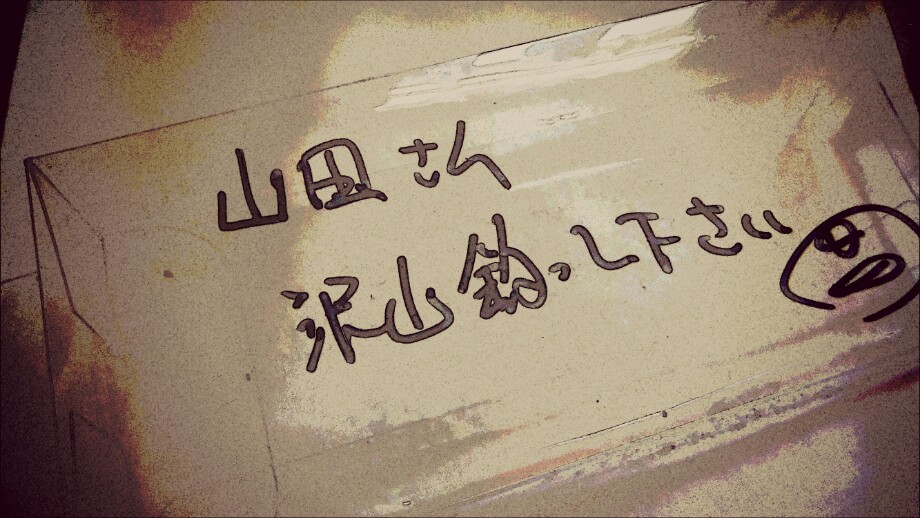 山田さん
沢山釣って下さい